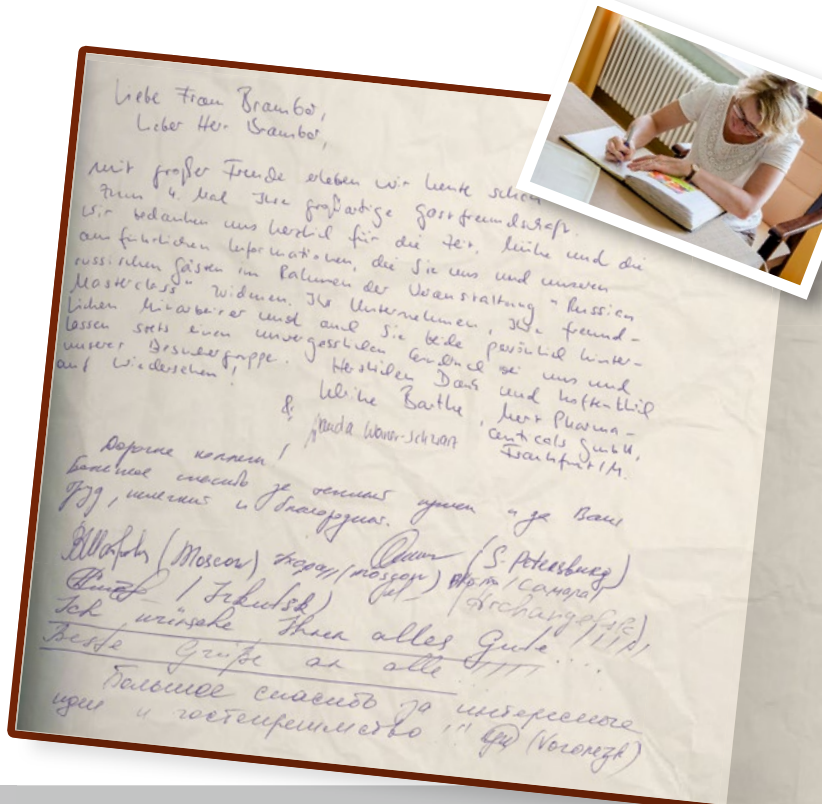 Liebe Frau Brambor,
Lieber Herr Brambor,
mit großer Freude erleben wir heute schon
zum 4. Mal Ihre großartige Gastfreundschaft.
Wir bedanken uns herzlich für die Zeit, Mühe und die
ausführlichen Informationen, die Sie uns und unseren
russischen Gästen im Rahmen der Veranstaltung "Russian
Masterclass" widmen. Ihr Unternehmen, Ihre freund-
lichen Mitarbeiter und auch Sie beide persönlich hinter-
lassen stets einen unvergesslichen Eindruck bei uns und
unserer Besuchergruppe. Herzlichen Dank und hoffentlich
auf Wiedersehen!
Ulrike Barthe, Merz Pharma-
& ceuticals GmbH,
Frankfurt/M.
Дорогие коллеги!
Большое спасибо за теплый прием и за Ваш
труд, нелегкий и благородный.
(Moscow) (S. Petersburg)
(Moscow) (Самара)
(Irkutsk) (Archangelsk)
Ich wünsche Ihnen alles Gute....
Beste Grüße an alle
Большое спасибо за интересные
идеи и гостеприимство !!! (Voronezh)